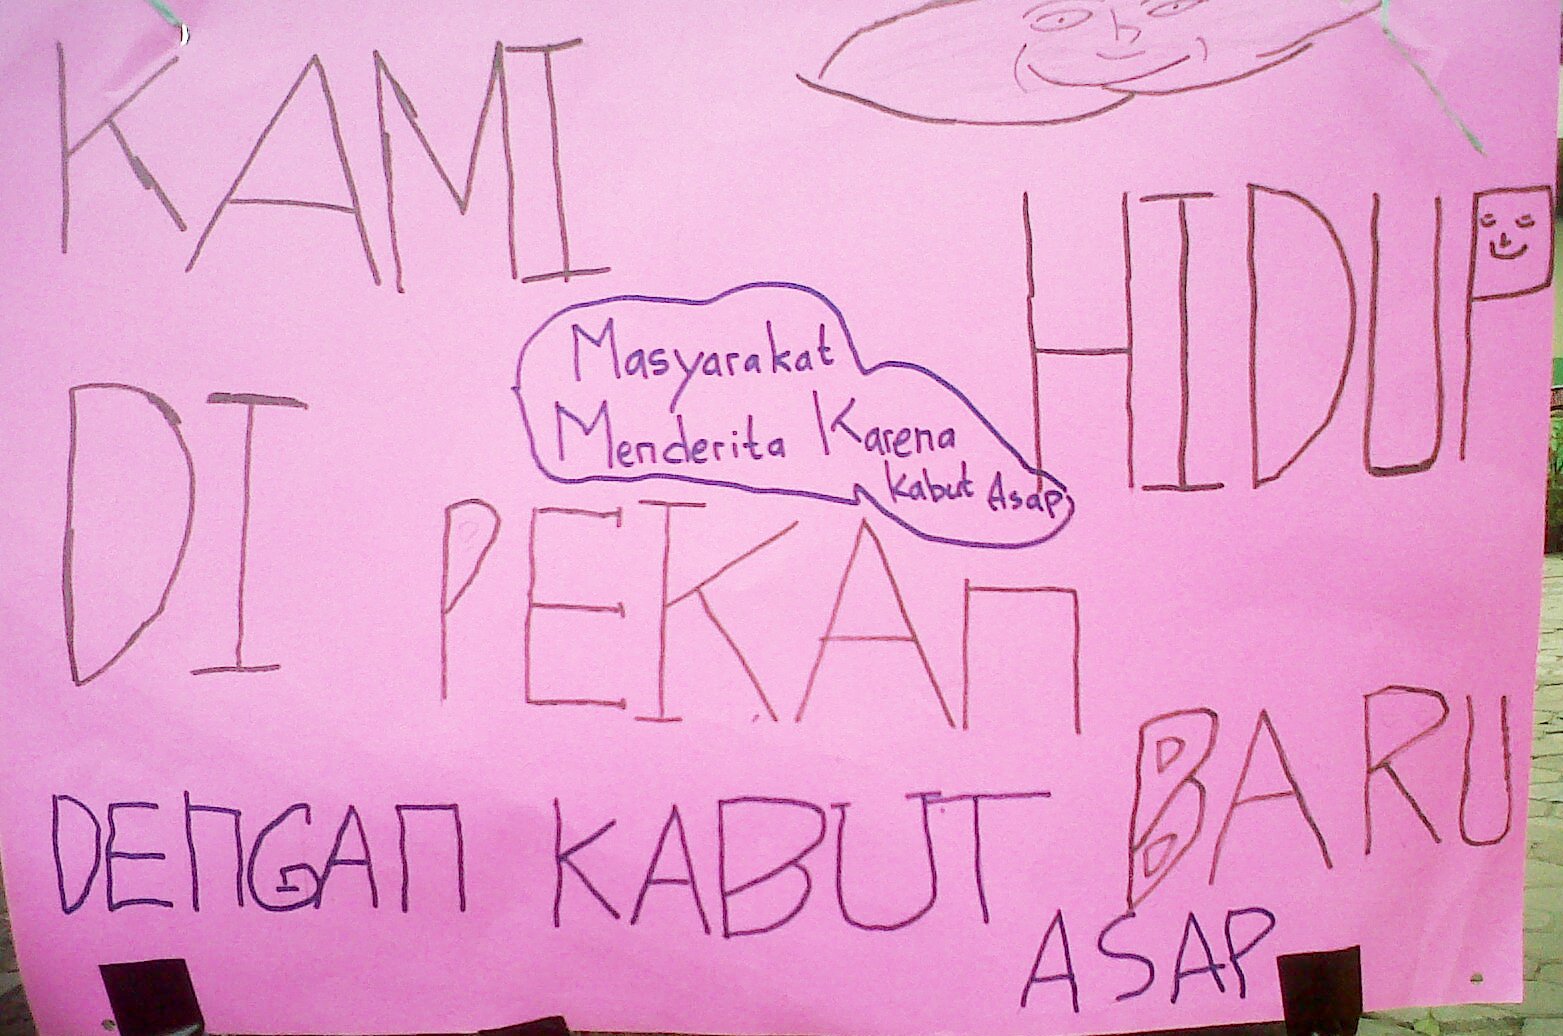 KAMI HIDUP
Masyarakat
Menderita Karena
Kabut Asap
DI PEKAn
BARU
DEnGAn KABUT
ASAP